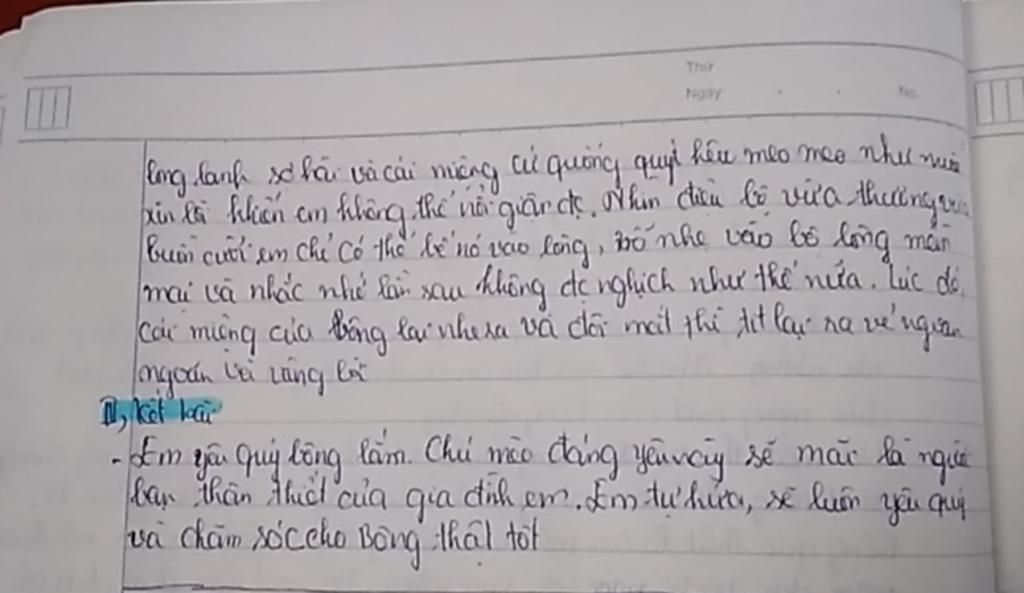 Thứ
Ngày No.
long lanh sợ hãi và cái miệng cứ quống quýt kêu meo meo như muốn
xin lỗi khiến em không thể nổi giận đc. Nhìn điệu bộ vừa thương vừa
buồn cười em chỉ có thể bế nó vào lòng, vỗ nhẹ vào bộ lông mềm
mại và nhắc nhở lần sau không đc nghịch như thế nữa. Lúc đó,
cái miệng của bông lại nhe ra và đôi mắt thì tít lại ra vẻ ngoan
ngoãn và vâng lời
III, Kết bài
- Em yêu quý bông lắm. Chú mèo đáng yêu này sẽ mãi là người
bạn thân thiết của gia đình em. Em tự hứa, sẽ luôn yêu quý
và chăm sóc cho Bông thật tốt